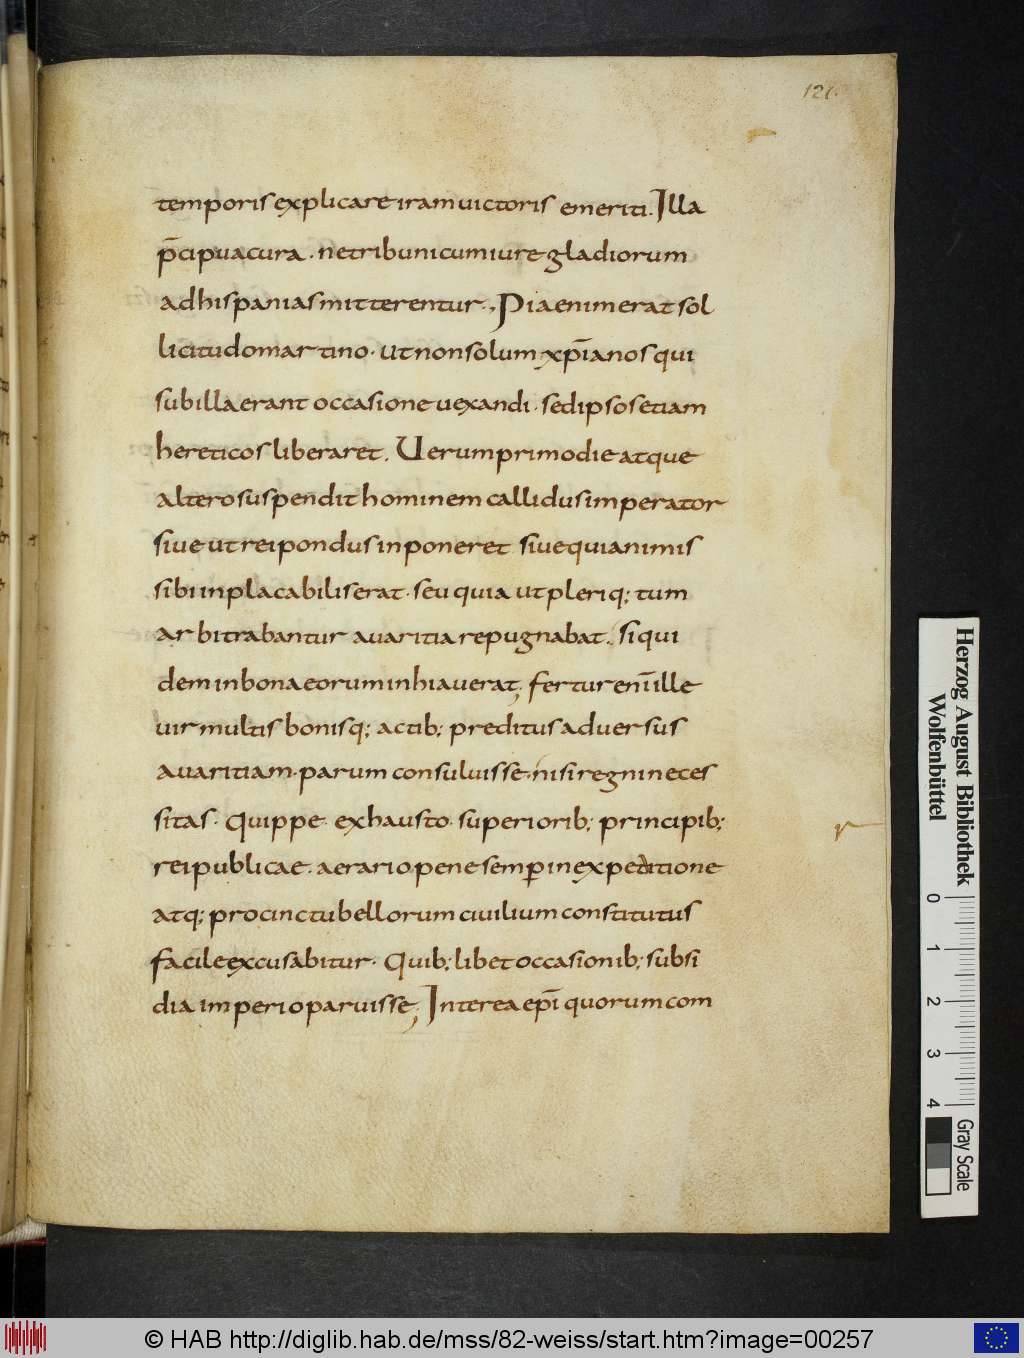 121.
temporis explicare iram uictoris emeriti. Illa
p̄cipua cura . ne tribuni cum iure gladiorum
ad hispanias mitterentur ., Pia enim erat sol
licitudo martino . ut non solum xp̄ianos qui
sub illa erant occasione uexandi . sed ipsos etiam
hereticos liberaret . Uerum primo die atque
altero suspendit hominem callidus imperator
siue ut rei pondus inponeret siue quia nimis
sibi inplacabilis erat . seu quia ut pleriq; tum
arbitrabantur auaritia repugnabat . siqui
dem in bona eorum inhiauerat; fertur enī ille
uir multis bonisq; actib; preditus aduersus
auaritiam . parum consuluisse . nisi regni neces
sitas . Quippe . exhausto . superiorib; principib;
rei publicae . aerario pene semp̲ in expeditione
atq; procinctu bellorum ciuilium constitutus
facile excusabitur . Quib; libet occasionib; subsi
dia imperio paruisse; Interea ep̄i quorum com
r
Herzog August Bibliothek
Wolfenbüttel
0 1 2 3 4
Gray Scale
© HAB http://diglib.hab.de/mss/82-weiss/start.htm?image=00257